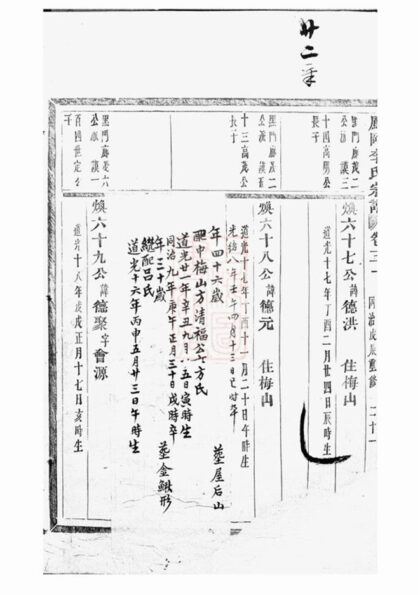 廿二
鳳岡李氏宗譜卷三十 同治戊辰重修 二十一
十四萬勝公
長子
煥六十七公諱德洪 住梅山
道光十七年丁酉二月廿四日辰時生
十三萬茂公
長子
煥六十八公諱德元 住梅山
道光十七年丁酉十一月二十日午時生
光緒八年壬午四月十三日巳時卒
年四十六歲 塟屋后山
配中梅山方清福公女方氏
道光廿一年辛丑九月初五日寅時生
同治九年庚午正月三十日戌時卒
年三十歲 塟金鰍形
繼配呂氏
道光十六年丙申五月廿三日午時生
百四世定公
子
煥六十九公諱德聚字會源
道光十八年戊戌正月十七日亥時生